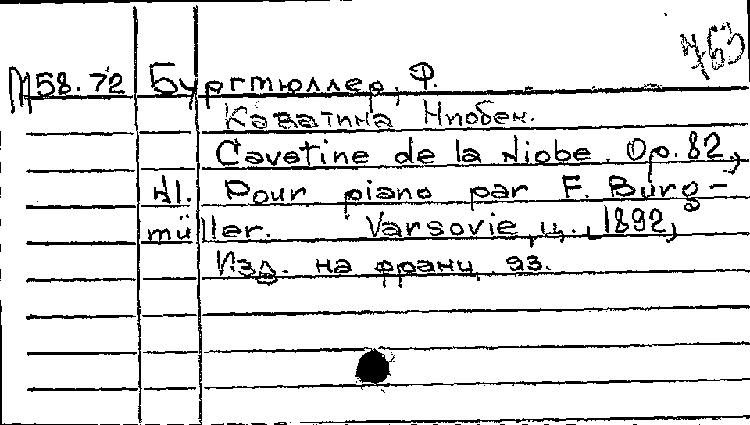 763
М58.72 Бургмюллер, Ф.
Каватина Ниобеи.
Cavatine de la Niobe. Op. 82,
N1. Pour piano par F. Burg-
müller. Varsovie, ц., 1892,
Изд. на франц. яз.